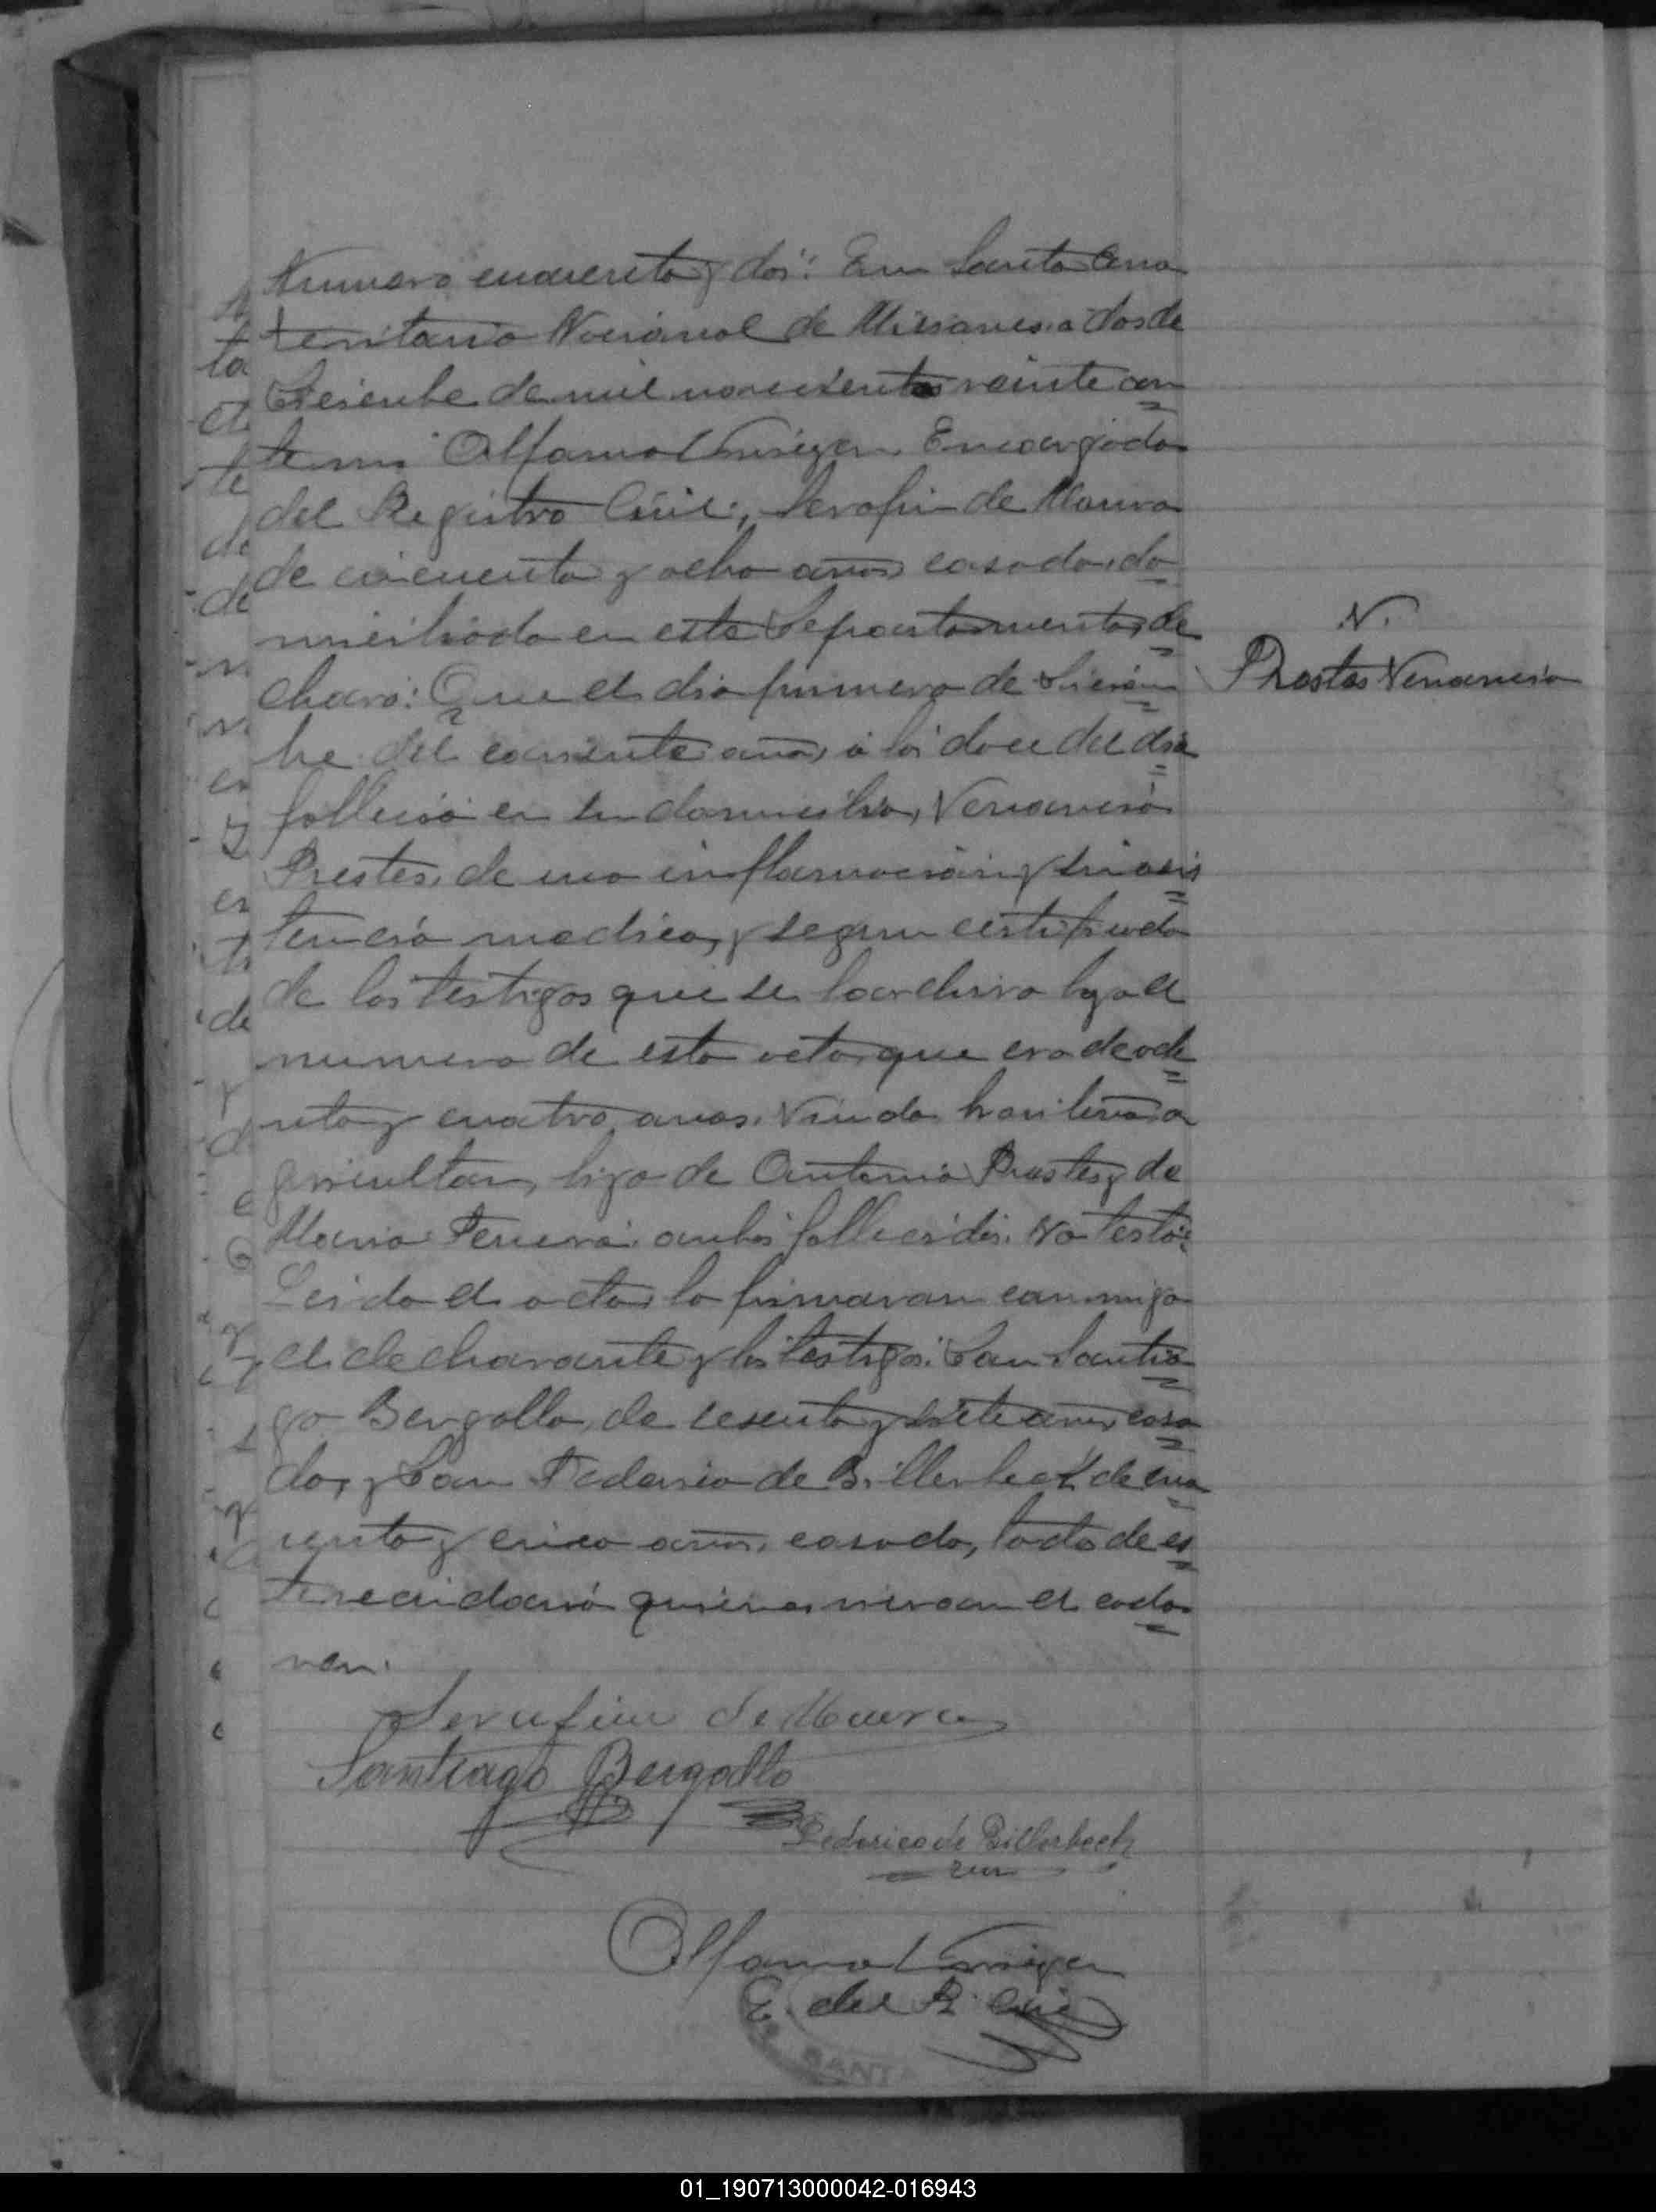 Numero cuarenta y dos: En Santa Ana
territorio Nacional de Misiones a dos de
Diciembre de mil novecientos veinte an
te mi Encargado
del Registro Civil, Serafin de Moura
de cincuenta y ocho años casado, do
miciliado en este Departamento, de
claró: Que el dia primero de Diciem
bre del corriente año, á las doce del dia
falleció en su domicilio, Venancio
Prestes, de una inflamacion y sin asis
tencia medica, y segun certificado
de los testigos que se lo archiva bajo el
numero de esta acta, que era de oche
nta y cuatro años, Viudo, brasilero, a
gricultor, hijo de Antonio Prestes y de
Maria Ferreira, ambos fallecidos. No testó.
Leida el acta, la firmaron conmigo
el declarante y los testigos: Don Santia
go Bergallo, de sesenta y siete años, casa
do, y Don Federico de Billerbeck de cua
renta y cinco años, casado, todos de es
te vecindario quienes vieron el cada
ver.
N.
Prestes Venancio
Serafim de Moura
Santiago Bergallo
Federico de Billerbeck
E. del R. Civil
SANTA
01_190713000042-016943